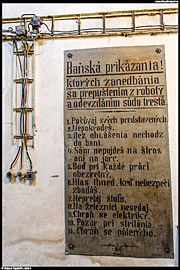 Baňská prikázania!
ktorých zanedbánia
sa prepustením z roboty
a odevzdáním súdu trestá.
1. Počúvaj svých predstavených.
2. Nepokradeš.
3. Bez ohlásenia nechodz
do bani.
4. Sám nepojdeš na štros
ani na jorc.
5. Bud pri každé práci
obezretný.
6. Hlas ihned, keď nebezpečí
zbadáš.
7. Neprebij štufu.
8. Na železnici nesedaj.
9. Chráň se elektriky.
10. Pozor pri strílání.
11. Chráň se páleného.